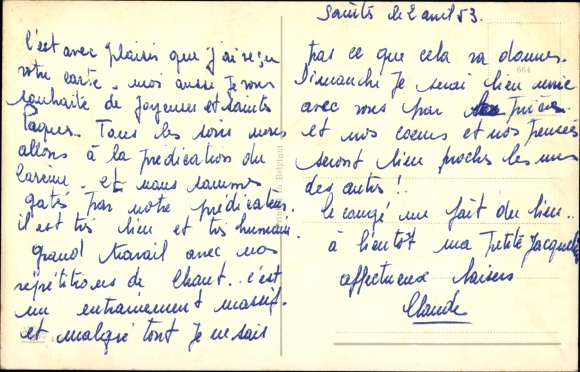 Saintes le 2 avril 53.
c'est avec plaisir que j'ai reçu
votre carte. moi aussi Je vous
souhaite de Joyeuses et saintes
Pâques. Tous les soirs nous
allons à la prédication du
Carême. et nous sommes
gatés par notre prédicateur
il est très bien et très humain.
grand travail avec nos
répétitions de Chant.. c'est
un entrainement massif.
et malgré tout Je ne sais
pas ce que cela va donner.
Dimanche Je serai bien unie
avec vous par la prière
et nos coeurs et nos pensées
seront bien proches les uns
des autres!
le congé me fait du bien..
à bientôt ma Petite Jacqueline
affectueux baisers
Claude
664
in Belgium